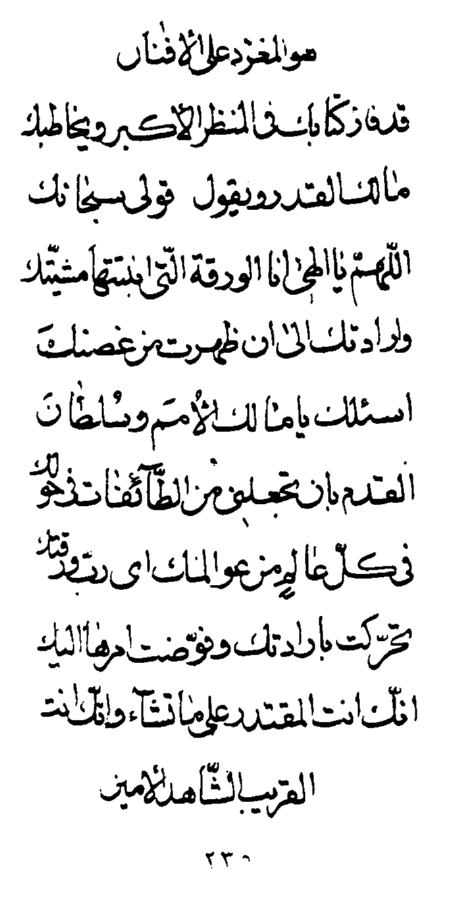 هو المغرّد على الافنان
قد فاز كتابك فى المنظر الاكبر و يخاطبك
مالك القدر و يقول قولى سبحانك
اللّهمّ يا الهى انا الورقة الّتى انبتتها مشيّتك
و ارادتك الى ان ظهرت من غصنك
اسئلك يا مالك الأمم و سلطان
القدم بان تجعلنى من الطّآئفات فى حولك
فى كلّ عالم من عوالمك اى ربّ ورقتك
تحرّكت بارادتك و فوّضت امرها اليك
انّك انت المقتدر على ما تشآء و انّك انت
القريب الشّاهد الامين